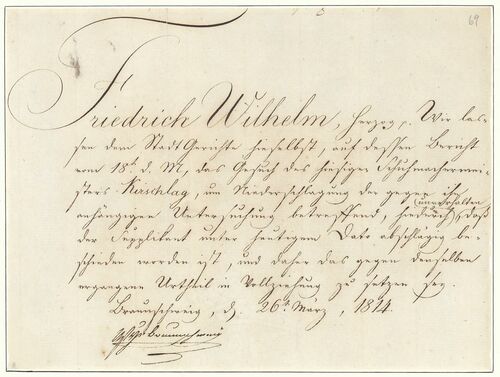 69
Friedrich Wilhelm, Herzog p. Wir las-
sen dem Stadt Gerichte hieselbst, auf dessen Bericht
vom 18t. d. M, das Gesuch des hiesigen Schuhmachermei-
sters Kirschlag, um Niederschlagung der gegen ihn
anhängigen Untersuchung betreffend, hiedurch (unverhalten), daß
der Supplikant unter heutigem Dato abschlägig be-
schieden worden ist, und daher das gegen denselben
ergangene Urtheil in Vollziehung zu setzen sey.
Braunschweig, d. 26t. März, 1814.